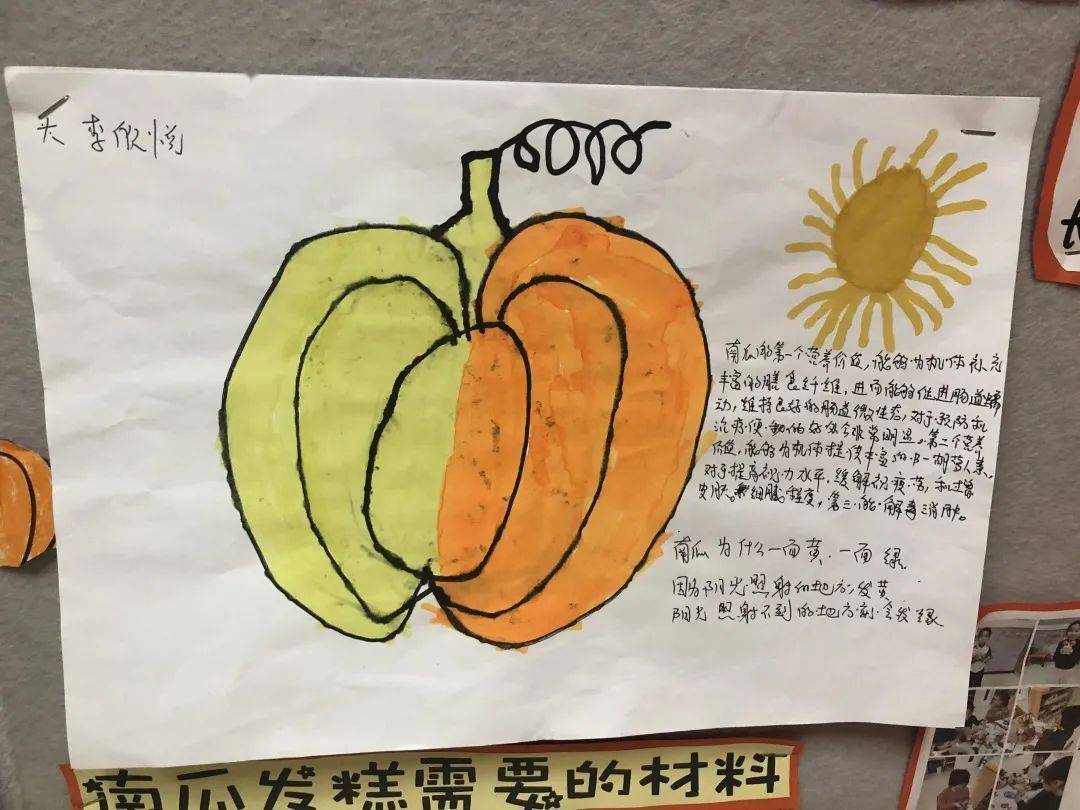 大 李欣悦
南瓜的第一个营养价值，能够为机体补充
丰富的膳食纤维，进而能够促进肠道蠕
动，维持良好的肠道微生态，对于预防和
治疗便秘的好处会非常明显。第二个营养
价值，能够为机体提供丰富的β-胡萝卜素，
对于提高视力水平，缓解视疲劳，和增
皮肤 细腻程度，第三.能.解毒消肿。
南瓜为什么一面黄.一面绿
因为阳光照射的地方发黄
阳光照射不到的地方则会发绿
南瓜发糕需要的材料